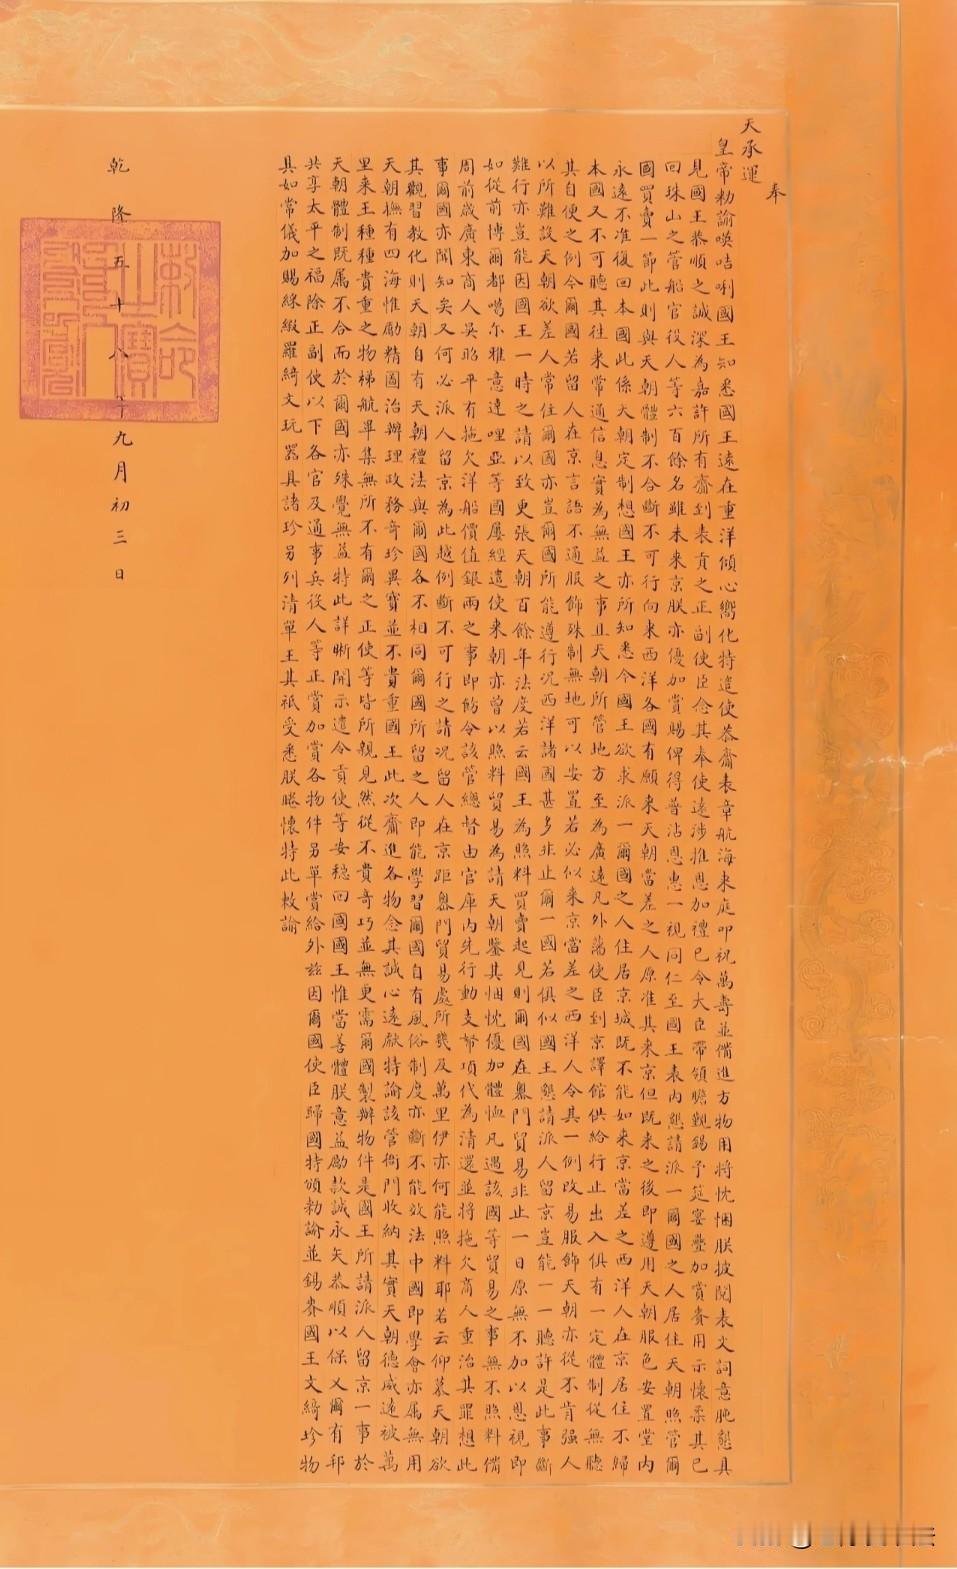 奉
天承運
皇帝勅諭㗼咭唎國王知悉國王遠在重洋傾心嚮化特遣使恭齎表章航海來庭叩祝萬壽並備進方物用將忱悃朕披閱表文詞意肫懇具
見國王恭順之誠深為嘉許所有齎到表貢之正副使臣念其奉使遠涉推恩加禮已令大臣帶領瞻覲錫予筵宴疊加賞賚用示懷柔其已
回珠山之管船官役人等六百餘名雖未來京朕亦優加賞賜俾得普沾恩惠一視同仁至國王表內懇請派一爾國之人居住天朝照管爾
國買賣一節此則與天朝體制不合斷不可行向來西洋各國有願來天朝當差之人原准其來京但既來之後即遵用天朝服色安置堂內
永遠不准復回本國此係天朝定制想國王亦所知悉今國王欲求派一爾國之人住居京城既不能如來京當差之西洋人在京居住不歸
本國又不可聽其往來常通信息實為無益之事且天朝所管地方至為廣遠凡外藩使臣到京譯館供給行止出入俱有一定體制從無聽
其自便之例今爾國若留人在京言語不通服飾殊制無地可以安置若必似來京當差之西洋人令其一例改易服飾天朝亦從不肯强人
以所難設天朝欲差人常住爾國亦豈爾國所能遵行况西洋諸國甚多非止爾一國若俱似國王懇請派人留京豈能一一聽許是此事斷
難行亦豈能因國王一時之請以致更張天朝百餘年法度若云國王為照料買賣起見則爾國在嶴門貿易非止一日原無不加以恩視即
如從前博爾都噶尔雅意達哩亞等國屢經遣使來朝亦曾以照料貿易為請天朝鑒其悃忱優加體恤凡遇該國等貿易之事無不照料備
周前歲廣東商人吳昭平有拖欠洋船價值銀兩之事即飭令該管總督由官庫內先行動支帑項代為清還並將拖欠商人重治其罪想此
事爾國亦聞知矣又何必派人留京為此越例斷不可行之請况留人在京距嶴門貿易處所幾及萬里伊亦何能照料耶若云仰慕天朝欲
其觀習教化則天朝自有天朝禮法與爾國各不相同爾國所留之人即能學習爾國自有風俗制度亦斷不能效法中國即學會亦属無用
天朝撫有四海惟勵精圖治辦理政務奇珍異寶並不貴重國王此次齎進各物念其誠心遠獻特諭該管衙門收納其實天朝德威遠被萬
里來王種種貴重之物梯航畢集無所不有爾之正使等皆所親見然從不貴奇巧並無更需爾國製辦物件是國王所請派人留京一事於
天朝體制既属不合而於爾國亦殊覺無益特此詳晰開示遣令貢使等安穩回國國王惟當善體朕意益勵款誠永矢恭順以保乂爾有邦
共享太平之福除正副使以下各官及通事兵役人等正賞加賞各物件另單賞給外兹因爾國使臣歸國特頒勅諭並錫賚國王文綺珍物
具如常儀加賜綵緞羅綺文玩器具諸珍另列清單王其祇受悉朕睠懷特此敕諭
乾隆五十八年九月初三日
敕命之寶